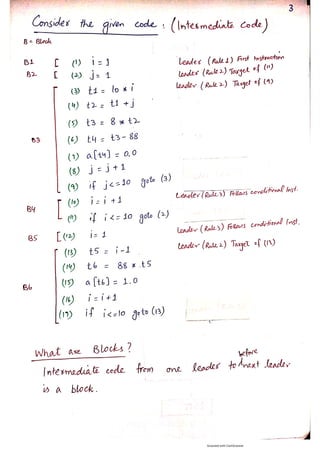 3
Consider the given code : (Intermediate Code)
B = Block
B1 [ (1) i = 1 Leader (Rule 1) First Instruction
B2 [ (2) j = 1 leader (Rule 2) Target of (11)
(3) t1 = 10 * i leader (Rule 2) Target of (9)
(4) t2 = t1 + j
(5) t3 = 8 * t2
B3 (6) t4 = t3 - 88
(7) a[t4] = 0.0
(8) j = j + 1
(9) if j <= 10 goto (3)
B4 (10) i = i + 1 Leader (Rule 3) Follows conditional Inst.
(11) if i <= 10 goto (2)
B5 [ (12) i = 1 Leader (Rule 3) Follows conditional Inst.
(13) t5 = i - 1 Leader (Rule 2) Target of (17)
(14) t6 = 88 * t5
B6 (15) a[t6] = 1.0
(16) i = i + 1
(17) if i <= 10 goto (13)
What are Blocks ?
Intermediate code from one leader to before next leader
is a block.
Scanned with CamScanner